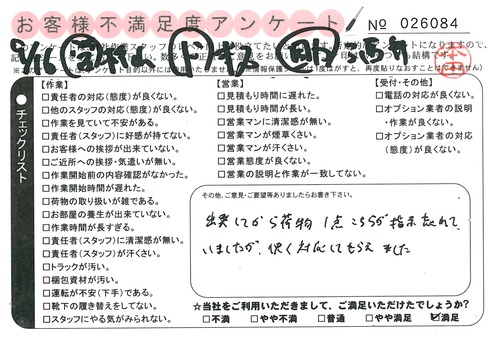 お客様不満足度アンケート
No 026084
チェックリスト
【作業】
□責任者の対応(態度)が良くない。
□他のスタッフの対応(態度)が良くない。
□作業を見ていて不安がある。
□責任者(スタッフ)に好感が持てない。
□お客様への挨拶が出来ていない。
□ご近所への挨拶・気遣いが無い。
□作業開始前の内容確認がなかった。
□作業開始時間が遅れた。
□荷物の取り扱いが雑である。
□お部屋の養生が出来ていない。
□作業時間が長すぎる。
□責任者(スタッフ)に清潔感が無い。
□責任者(スタッフ)が汗くさい。
□トラックが汚い。
□梱包資材が汚い。
□運転が不安(下手)である。
□靴下の履き替えをしてない。
□スタッフにやる気がみられない。
【営業】
□見積もり時間に遅れた。
□見積もり時間が長い。
□営業マンに清潔感が無い。
□営業マンが煙草くさい。
□営業マンが汗くさい。
□営業態度が良くない。
□営業の説明と作業が一致してない。
【受付・その他】
□電話の対応が良くない。
□オプション業者の説明
・作業が良くない。
□オプション業者の対応
(態度)が良くない。
その他、ご意見・ご要望等ありましたらお書き下さい。
出発してから荷物1点こちらが指示忘れて
いましたが、快く対応してもらえました
☆当社をご利用いただきまして、ご満足いただけたでしょうか?
□不満 □やや不満 □普通 □やや満足 ☑満足